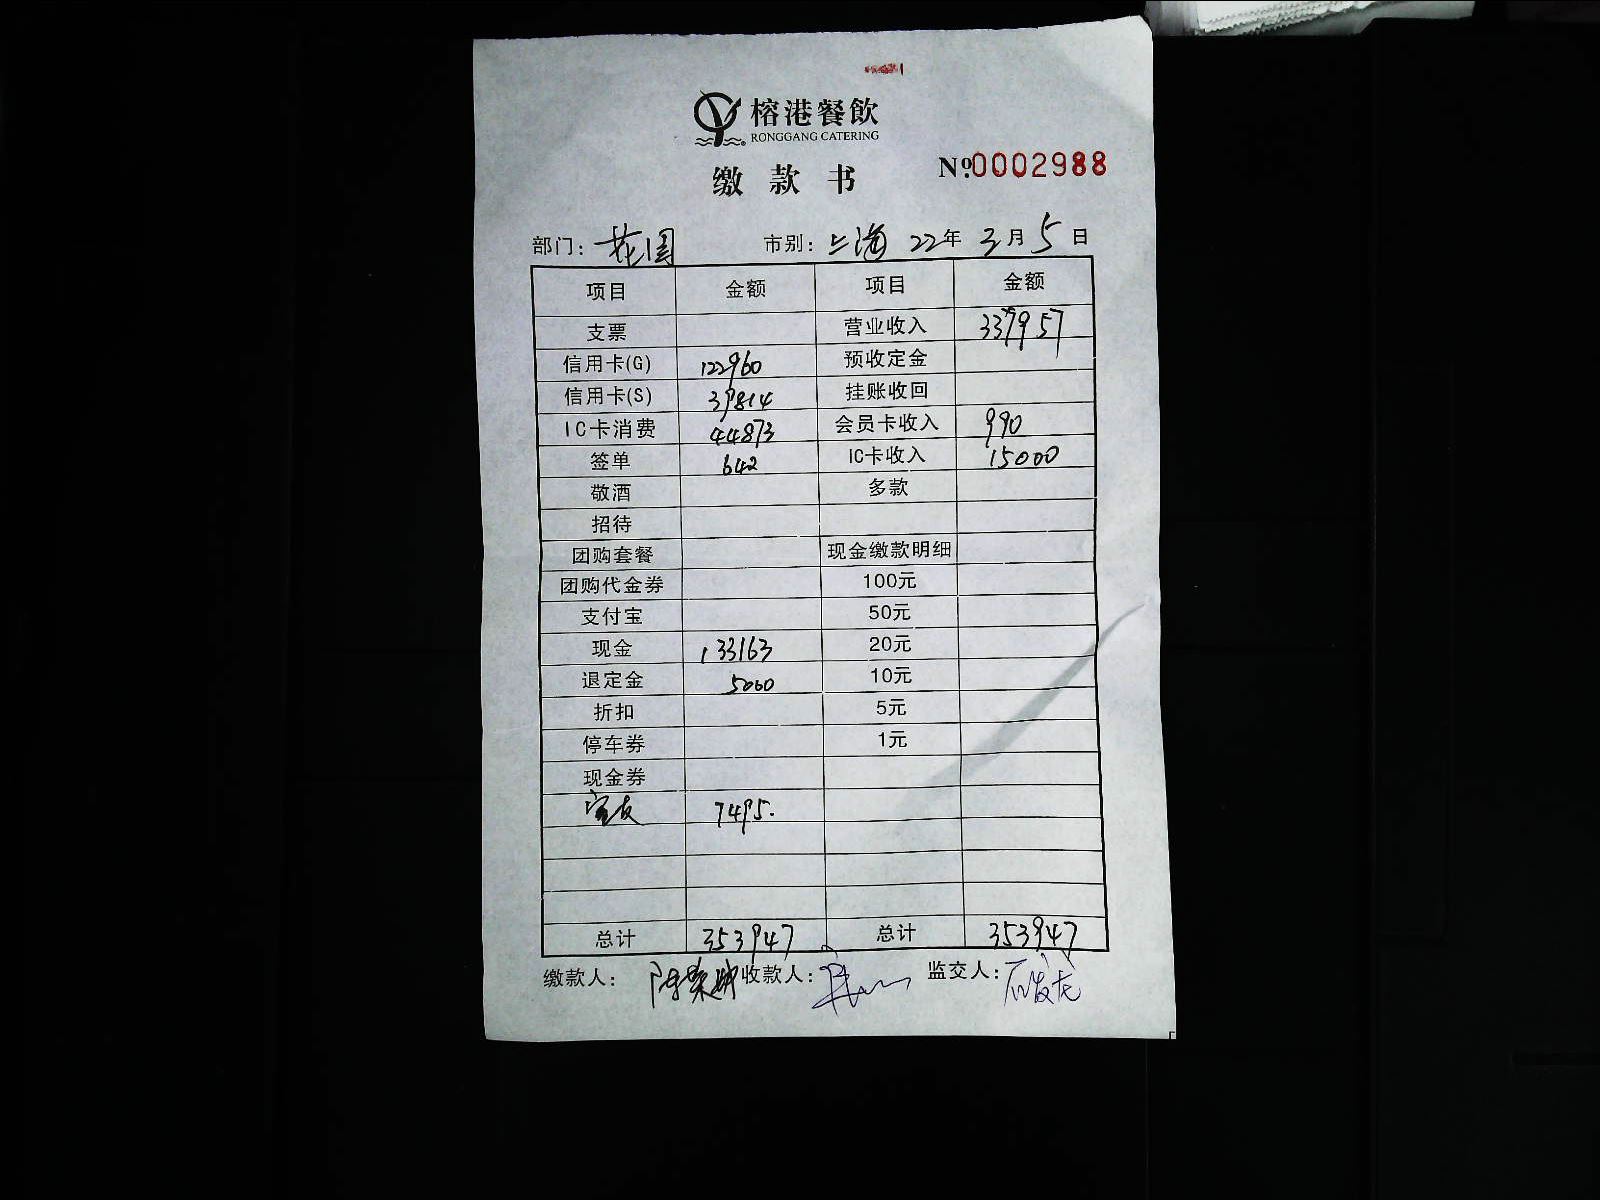 榕港餐飲
RONGGANG CATERING
缴款书
№0002988
部门：花园 市别：上海 22年 3月5日
项目 金额 项目 金额
支票 营业收入 337957
信用卡(G) 122960 预收定金
信用卡(S) 39814 挂账收回
IC卡消费 44873 会员卡收入 990
签单 642 IC卡收入 15000
敬酒 多款
招待
团购套餐 现金缴款明细
团购代金券 100元
支付宝 50元
现金 133163 20元
退定金 5000 10元
折扣 5元
停车券 1元
现金券
7495.
总计 353947 总计 353947
缴款人： 收款人： 监交人：